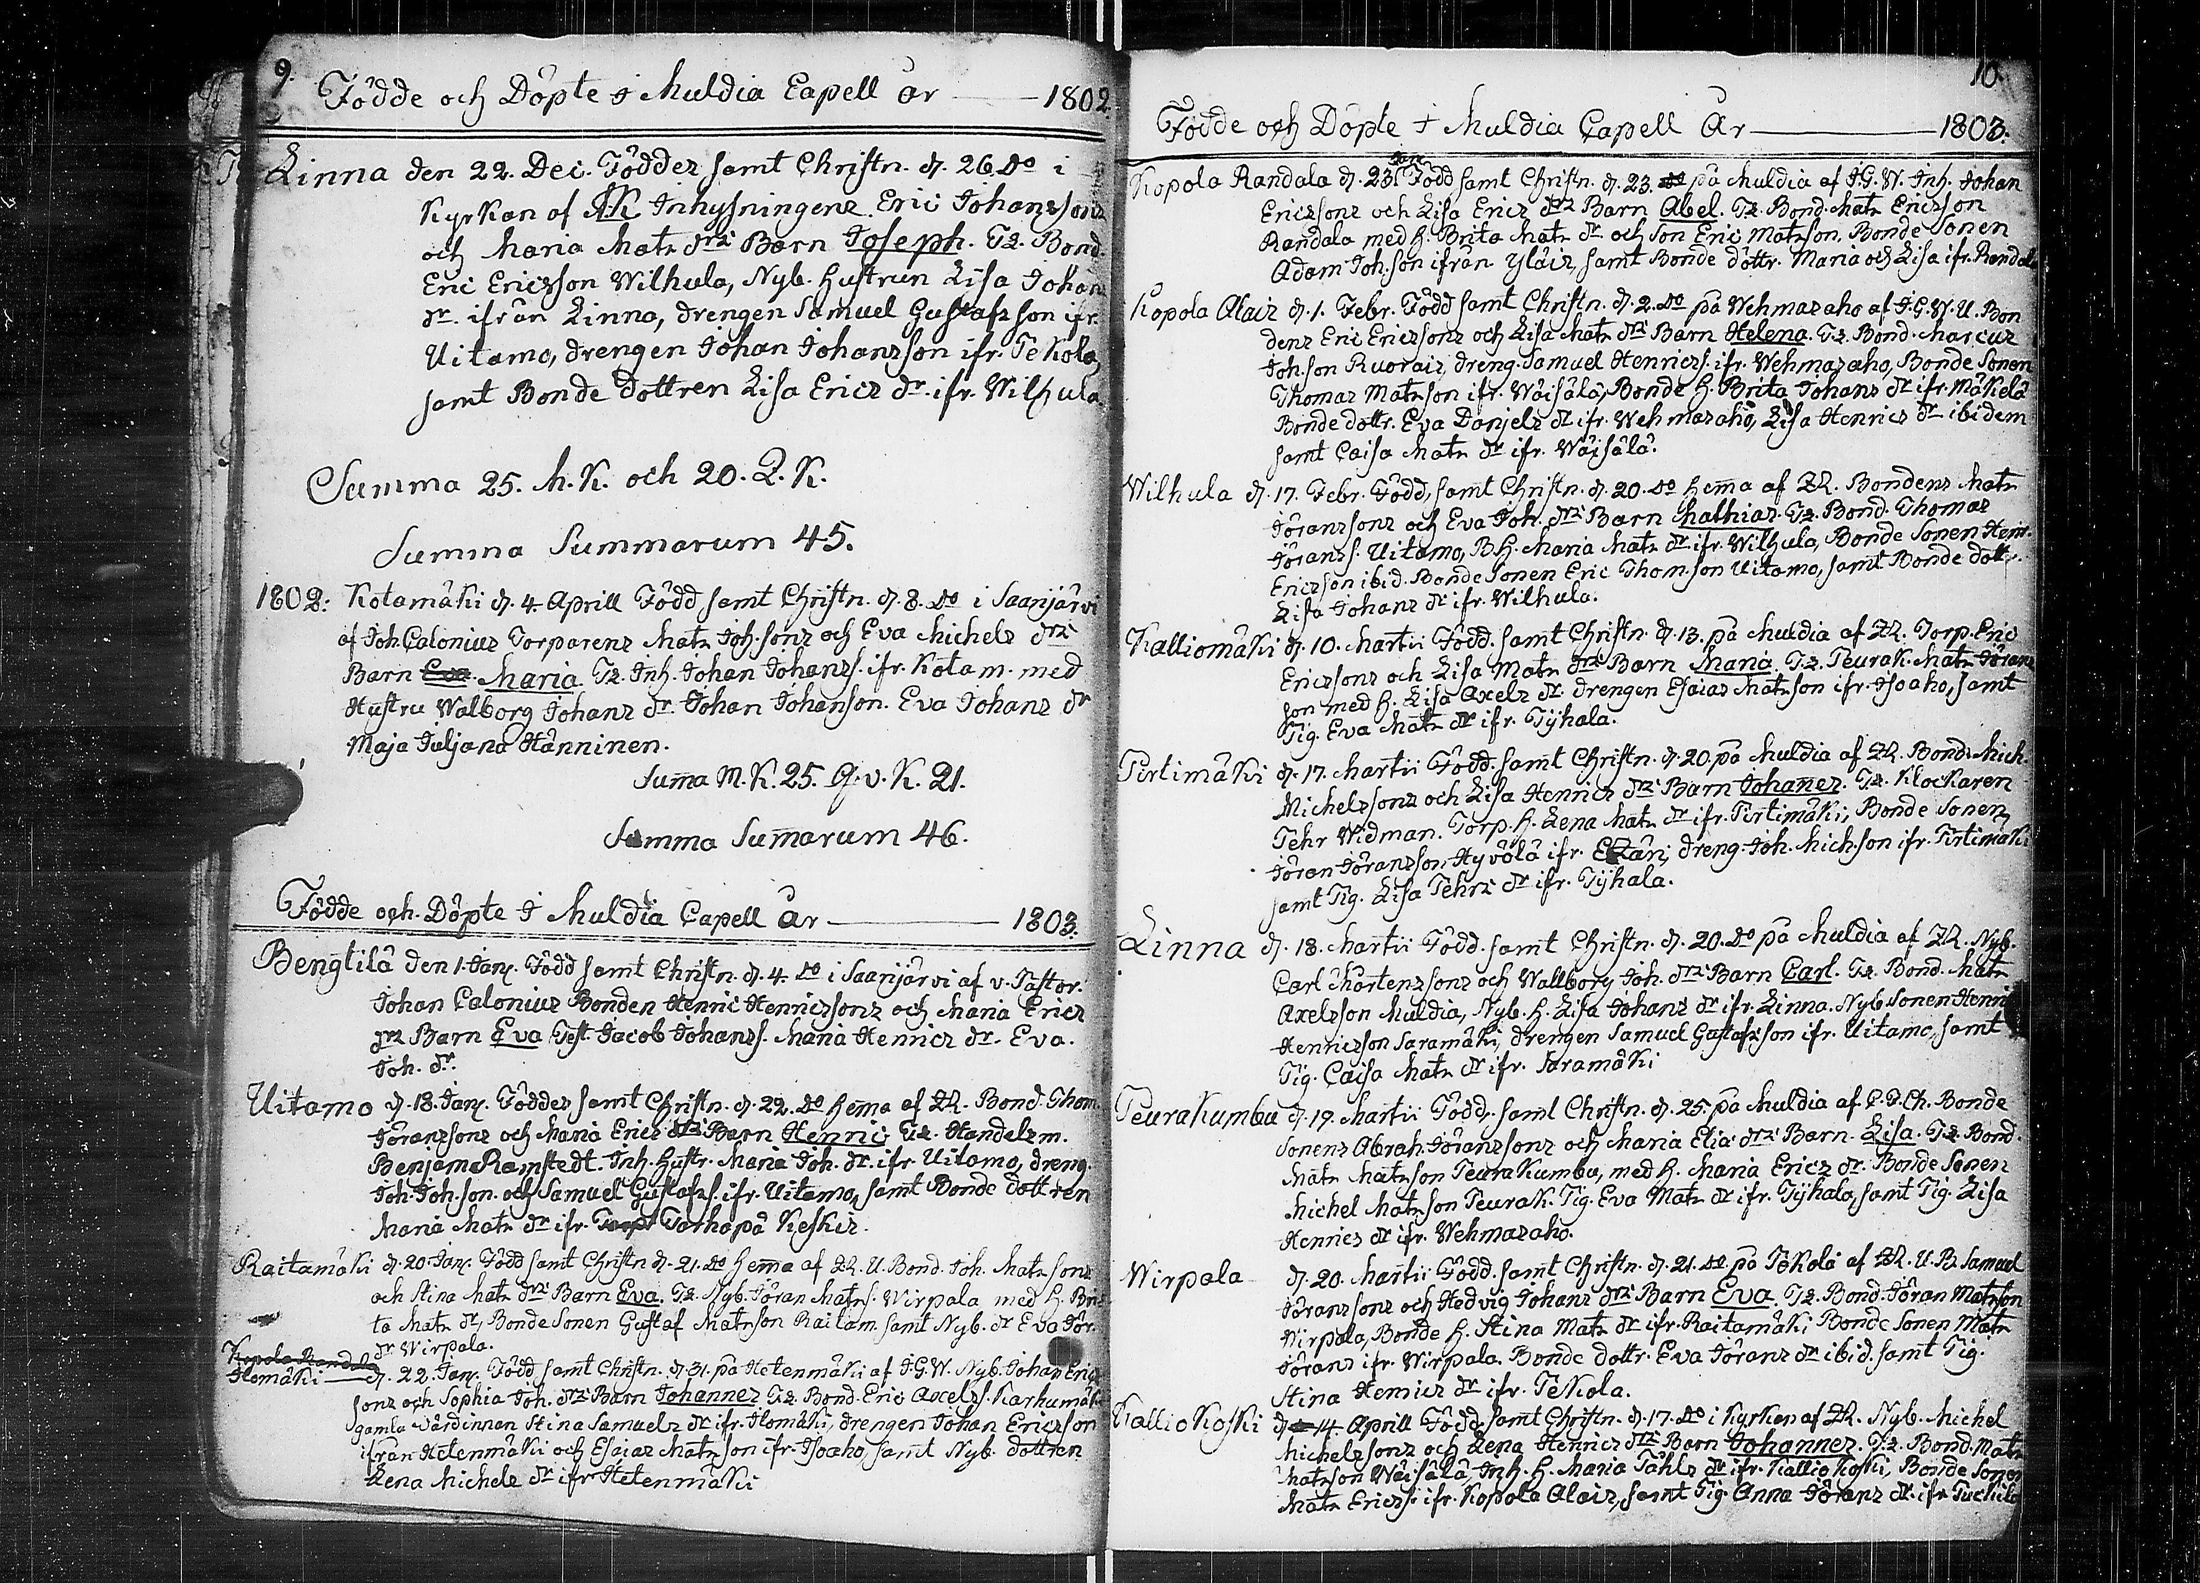 9.
Födde och Döpte I Muldia Capell år — 1802.
Linna den 22. Dec. Föddes samt Christn. d. 26. do i
Kyrkan af Inhysningens Eric Johanssons
och Maria Mats drs Barn Joseph. Ts. Bond.
Eric Ericsson Wilhula, Nyb. Hustrun Lisa Johans
dr. ifrån Linna, drengen Samuel Gustafsson ifr.
Uitamo, drengen Johan Johansson ifr. Tekola,
samt Bonde dottren Lisa Erics dr. ifr. Wilhula.
Summa 25. M.K. och 20. Q.K.
Summa Summarum 45.
1802: Kotamäki d. 4. Aprill Född samt Christn. d. 8. do i Saarijärvi
af Joh. Calonius Torparens Mats Joh.sons och Eva Michels drs
Barn Eva Maria Ts. Inh. Johan Johanss. ifr. Kotam. med
Hustru Walborg Johans dr. Johan Johanson. Eva Johans dr
Maja Juljana Hänninen.
Suma M.K. 25. Q.v.K. 21.
Summa Sumarum 46.
Födde och Döpte I Muldia Capell År — 1803.
Bengtilä den 1. Janr. Född samt Christn. d. 4. do i Saarijärvi af v. Pastor.
Johan Calonius Bonden Henric Henricssons och Maria Erics
drs Barn Eva Test. Jacob Johanss. Maria Henrics dr. Eva.
Joh. dr.
Uitamo d. 18. Janr. Föddes samt Christn. d. 22. do hema af Bond. Thom.
Göranssons och Maria Erics drs Barn Henric Ts. Handelsm.
Benjam Ramstedt. Inh. Hustr. Maria Joh. dr. ifr. Uitamo, dreng.
Joh. Joh.son. och Samuel Gustafss. ifr. Uitamo, samt Bonde dottren
Maria Mats dr ifr. Torhopå Keskis.
Raitamäki d. 20. Janr. Född samt Christn d. 21. do hema af U. Bond. Joh. Mats sons
och Stina Mats drs Barn Eva. Ts. Nyb. Göran Matss. Wirpala med H. Bri
ta Mats dr, Bonde Sonen Gustaf Matsson Raitam. samt Nyb. dr Eva Gör.
dr Wirpala.
Kopola Randala
Ilomäki — d. 22. Janr. Född samt Christn. d. 31. på Hetenmäki af I.G.W. Nyb. Johan Erics
sons och Sophia Joh. drs Barn Johannes Ts. Bond. Eric Axelss. Karhumäk
gamla Värdinnan Stina Samuels dr ifr. Ilomäki, drengen Johan Ericsson
ifrån Hetenmäki och Esaias Matsson ifr. Isoaho, samt Nyb. dottren
Lena Michels dr ifr Hetenmäki
10.
Födde och Döpte I Muldia Capell År — 1803.
Kopola Randala d. 23. Jan. Född samt Christn. d. 23. do på Muldia af I.G.W. Inh. Johan
Ericssons och Lisa Erics drs Barn Abel. Ts. Bond. Mats Ericson
Randala med H. Brita Mats dr. och Son Eric Matsson. Bonde Sonen
Adam Joh.son ifrån Yläis, samt Bonde döttr. Maria och Lisa ifr. Randala
Kopola Alais d. 1. Febr. Född samt Christn. d. 2. do på Wehmasaho af I.G.W. U. Bon
dens Eric Ericssons och Lisa Mats drs Barn Helena. Ts. Bond. Marcus
Joh.son Ruorais, dreng. Samuel Henricss. ifr. Wehmasaho, Bonde Sonen
Thomas Matsson ifr. Wäisälä, Bonde H. Brita Johans dr ifr. Mäkelä
Bonde dottr. Eva Danjels dr ifr. Wehmasaho, Lisa Henrics dr ibidem
samt Caisa Mats dr ifr. Wäisälä.
Wilhula d. 17. Febr. Född, samt Christn. d. 20. do hema af Bondens Mats
Göranssons och Eva Joh. drs Barn Mathias Ts. Bond. Thomas
Göranss. Uitamo, B.H. Maria Mats dr ifr. Wilhula, Bonde Sonen Henr.
Ericsson ibid. Bonde Sonen Eric Thom.son Uitamo, samt Bonde dott.
Lisa Johans dr ifr. Wilhula.
Kalliomäki d. 10. Martii Född. samt Christn. d. 13. på Muldia af Torp. Eric
Ericssons och Lisa Mats drs Barn Maria Ts. Peurak. Mats Görans
son med H. Lisa Axels dr. drengen Esaias Matsson ifr. Isoaho, samt
Pig. Eva Mats dr ifr. Pyhala.
Pirtimäki d. 17. Martii Född. samt Christn. d. 20. på Muldia af Bond. Mich.
Michelssons och Lisa Henrics drs Barn Johannes. Ts. Klockaren
Pehr Widman. Torp. H. Lena Mats dr ifr. Pirtimäki, Bonde Sonen
Göran Göransson Hyvölä ifr. dreng. Joh. Mich.son ifr. Pirtimäki
samt Pig. Lisa Pehrs dr ifr. Pyhala.
Linna d. 18. Martii Född. samt Christn. d. 20. do på Muldia af Nyb.
Carl Mortenssons och Wallborg Joh. drs Barn Carl. Ts. Bond. Mats
Axelsson Muldia, Nyb. H. Lisa Johans dr ifr. Linna. Nyb. Sonen Henric
Henricsson Saramäki, drengen Samuel Gustafsson ifr. Uitamo, samt
Pig. Caisa Mats dr ifr. Saramäki
Peurakumbu d. 19. Martii Född. samt Christn. d. 25. på Muldia af Bonde
Sonens Abrah. Göranssons och Maria Elia drs Barn. Lisa. Ts. Bond.
Mats Matsson Peurakumbu, med H. Maria Erics dr. Bonde Sonen
Michel Matsson Peurak. Pig. Eva Mats dr ifr. Pyhala, samt Pig. Lisa
Henrics dr ifr. Wehmasaho.
Wirpala d. 20. Martii Född. samt Christn. d. 21. do. på Tekola af U.B. Samuel
Göranssons och Hedvig Johans drs Barn Eva Ts. Bond. Göran Matsson
Wirpala, Bonde H. Stina Mats dr ifr. Raitamäki Bonde Sonen Mats
Görans ifr. Wirpala. Bonde dottr. Eva Görans dr ibid. samt Pig.
Stina Henrics dr ifr. Tekola.
Kalliokoski d. 14. Aprill Född. samt Christn. d. 17. do i Kyrkan af Nyb. Michel
Michelssons och Lena Henrics drs Barn Johannes. Ts. Bond. Mats
Matsson Wäisälä, Inh. H. Maria Påhls dr ifr. Kalliokoski, Bonde Sonen
Mats Ericss. ifr. Kopola Alais, samt Pig. Anna Görans dr. ifr.